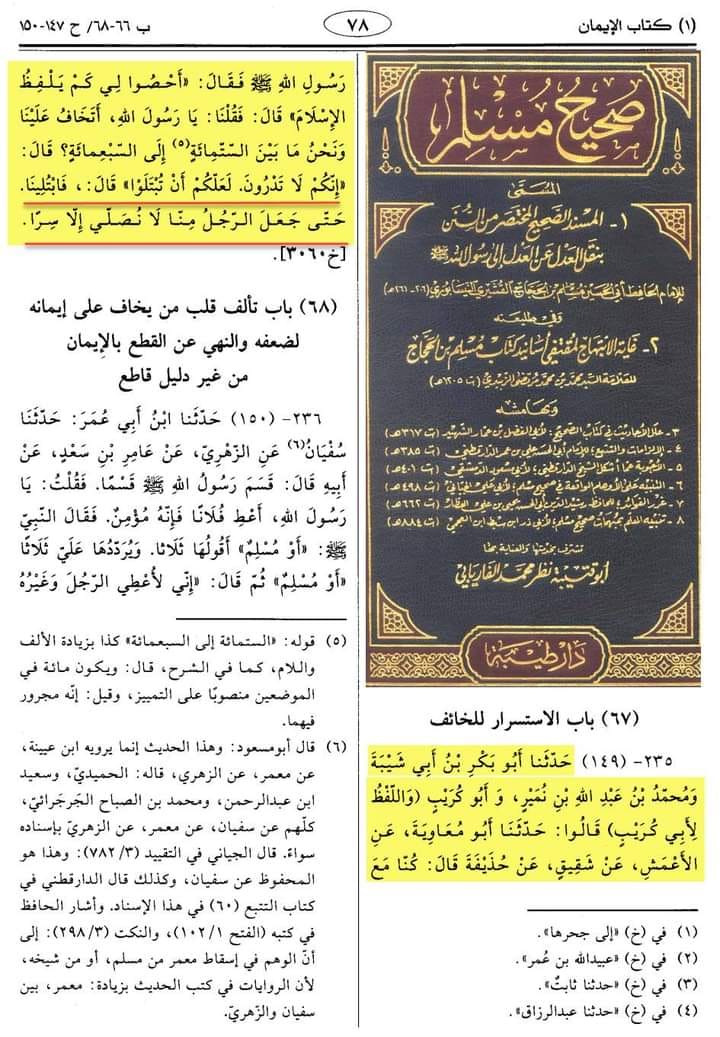 (١) كتاب الإيمان
٧٨
ب ٦٦-٦٨/ ح ١٤٧-١٥٠
صحيح مسلم
المسمى
١- المسند الصحيح المختصر من السنن
بنقل العدل عن العدل إلى رسول الله ﷺ
للإمام الحافظ أبي الحسين مسلم بن الحجاج القشيري النيسابوري (٢٠٦-٢٦١هـ)
وفي طليعته
٢- غاية الابتهاج لمقتفي أسانيد كتاب مسلم بن الحجاج
للعلامة السيد محمد بن محمد مرتضى الزبيدي (ت ١٢٠٥هـ)
وبهامشه
٣- علل الأحاديث في كتاب الصحيح: لأبي الفضل بن عمار الشهيد (ت ٣١٧هـ)
٤- الإلزامات والتتبع: للإمام أبي الحسن علي بن عمر الدارقطني (ت ٣٨٥هـ)
٥- الأجوبة عما أشكل الشيخ الدارقطني: لأبي مسعود الدمشقي (ت ٤٠١هـ)
٦- التنبيه على الأوهام الواقعة في صحيح مسلم: لأبي علي الجياني (ت ٤٩٨هـ)
٧- غرر الفوائد: للحافظ رشيد الدين أبي الحسين يحيى بن علي العطار (ت ٦٦٢هـ)
٨- تنبيه المعلم بمبهمات صحيح مسلم: لأبي ذر ابن سبط ابن العجمي (ت ٨٨٤هـ)
تشرف بخدمتها والعناية بها
أبو قتيبة نظر محمد الفاريابي
دار طيبة
(٦٧) باب الاستسرار للخائف
٢٣٥- (١٤٩) حَدّثَنا أَبُو بَكْرِ بْنُ أَبِي شَيْبَةَ
وَمُحمّدُ بْنُ عَبْدِ اللهِ بْنِ نُمَيْرٍ، وَ أَبُو كُرَيْبٍ (وَاللّفْظُ
لِأَبِي كُرَيْبٍ) قَالُوا: حَدّثَنَا أَبُو مُعَاوِيَةَ، عَنِ
الأَعْمَشِ، عَنْ شَقِيقٍ، عَنْ حُذَيْفَةَ قَالَ: كُنّا مَعَ
(١) في (خ) «إلى جحرها».
(٢) في (خ) «عبيدالله بن عُمر».
(٣) في (خ) «حدثنا ثابتٌ».
(٤) في (خ) «حدثنا عبدالرزاق».
رَسُولِ اللهِ ﷺ فَقَالَ: «أَحْصُوا لِي كَمْ يَلْفِظُ
الإِسْلَامَ» قَالَ: فَقُلْنَا: يَا رَسُولَ اللهِ، أَتَخَافُ عَلَيْنَا
وَنَحْنُ مَا بَيْنَ السّتّمِائَةِ(٥) إِلَى السّبْعِمائَةِ؟ قَالَ:
«إِنّكُمْ لَا تَدْرُونَ. لَعَلّكُمْ أَنْ تُبْتَلَوْا» قَالَ: ، فَابْتُلِينَا.
حَتّى جَعَلَ الرّجُلُ مِنّا لَا نُصَلّي إِلّا سِرًا.
[خ٣٠٦٠].
(٦٨) باب تألف قلب من يخاف على إيمانه
لضعفه والنهي عن القطع بالإيمان
من غير دليل قاطع
٢٣٦- (١٥٠) حَدّثَنا ابْنُ أَبِي عُمَرَ: حَدّثَنَا
سُفْيَانُ(٦) عَنِ الزّهْرِيّ، عَنْ عَامِرِ بْنِ سَعْدٍ، عَنْ
أَبِيهِ قَالَ: قَسَمَ رَسُولُ اللهِ ﷺ قَسْمًا. فَقُلْتُ: يَا
رَسُولَ اللهِ، أَعْطِ فُلَانًا فَإِنّهُ مُؤْمِنٌ. فَقَالَ النّبِيّ
ﷺ: «أَوْ مُسْلِمٌ» أَقُولُهَا ثَلَاثًا. وَيُرَدّدُهَا عَلَيّ ثَلَاثًا
«أَوْ مُسْلِمٌ» ثُمّ قَالَ: «إِنّي لأُعْطِي الرّجُلَ وَغَيْرُهُ
(٥) قوله: «الستمائة إلى السبعمائة» كذا بزيادة الألف
واللام، كما في الشرح، قال: ويكون مائة في
الموضعين منصوبًا على التمييز، وقيل: إنّه مجرور
فيهما.
(٦) قال أبومسعود: وهذا الحديث إنما يرويه ابن عيينة،
عن معمر، عن الزهري، قاله: الحميديّ، وسعيد
ابن عبدالرحمن، ومحمد بن الصباح الجَرجَرائيّ،
كلّهم عن سفيان، عن معمر، عن الزهريّ بإسناده
سواءً. قال الجياني في التقييد (٣/ ٧٨٢): وهذا هو
المحفوظ عن سفيان، وكذلك قال الدارقطني في
كتاب التتبع (٦٠) في هذا الإسناد. وأشار الحافظ
في كتبه (الفتح ١/ ١٠٢)، والنكت (٣/ ٢٩٨): إلى
أنّ الوهم في إسقاط معمر من مسلم، أو من شيخه،
لأن الروايات في كتب الحديث بزيادة: معمر، بين
سفيان والزهريّ.